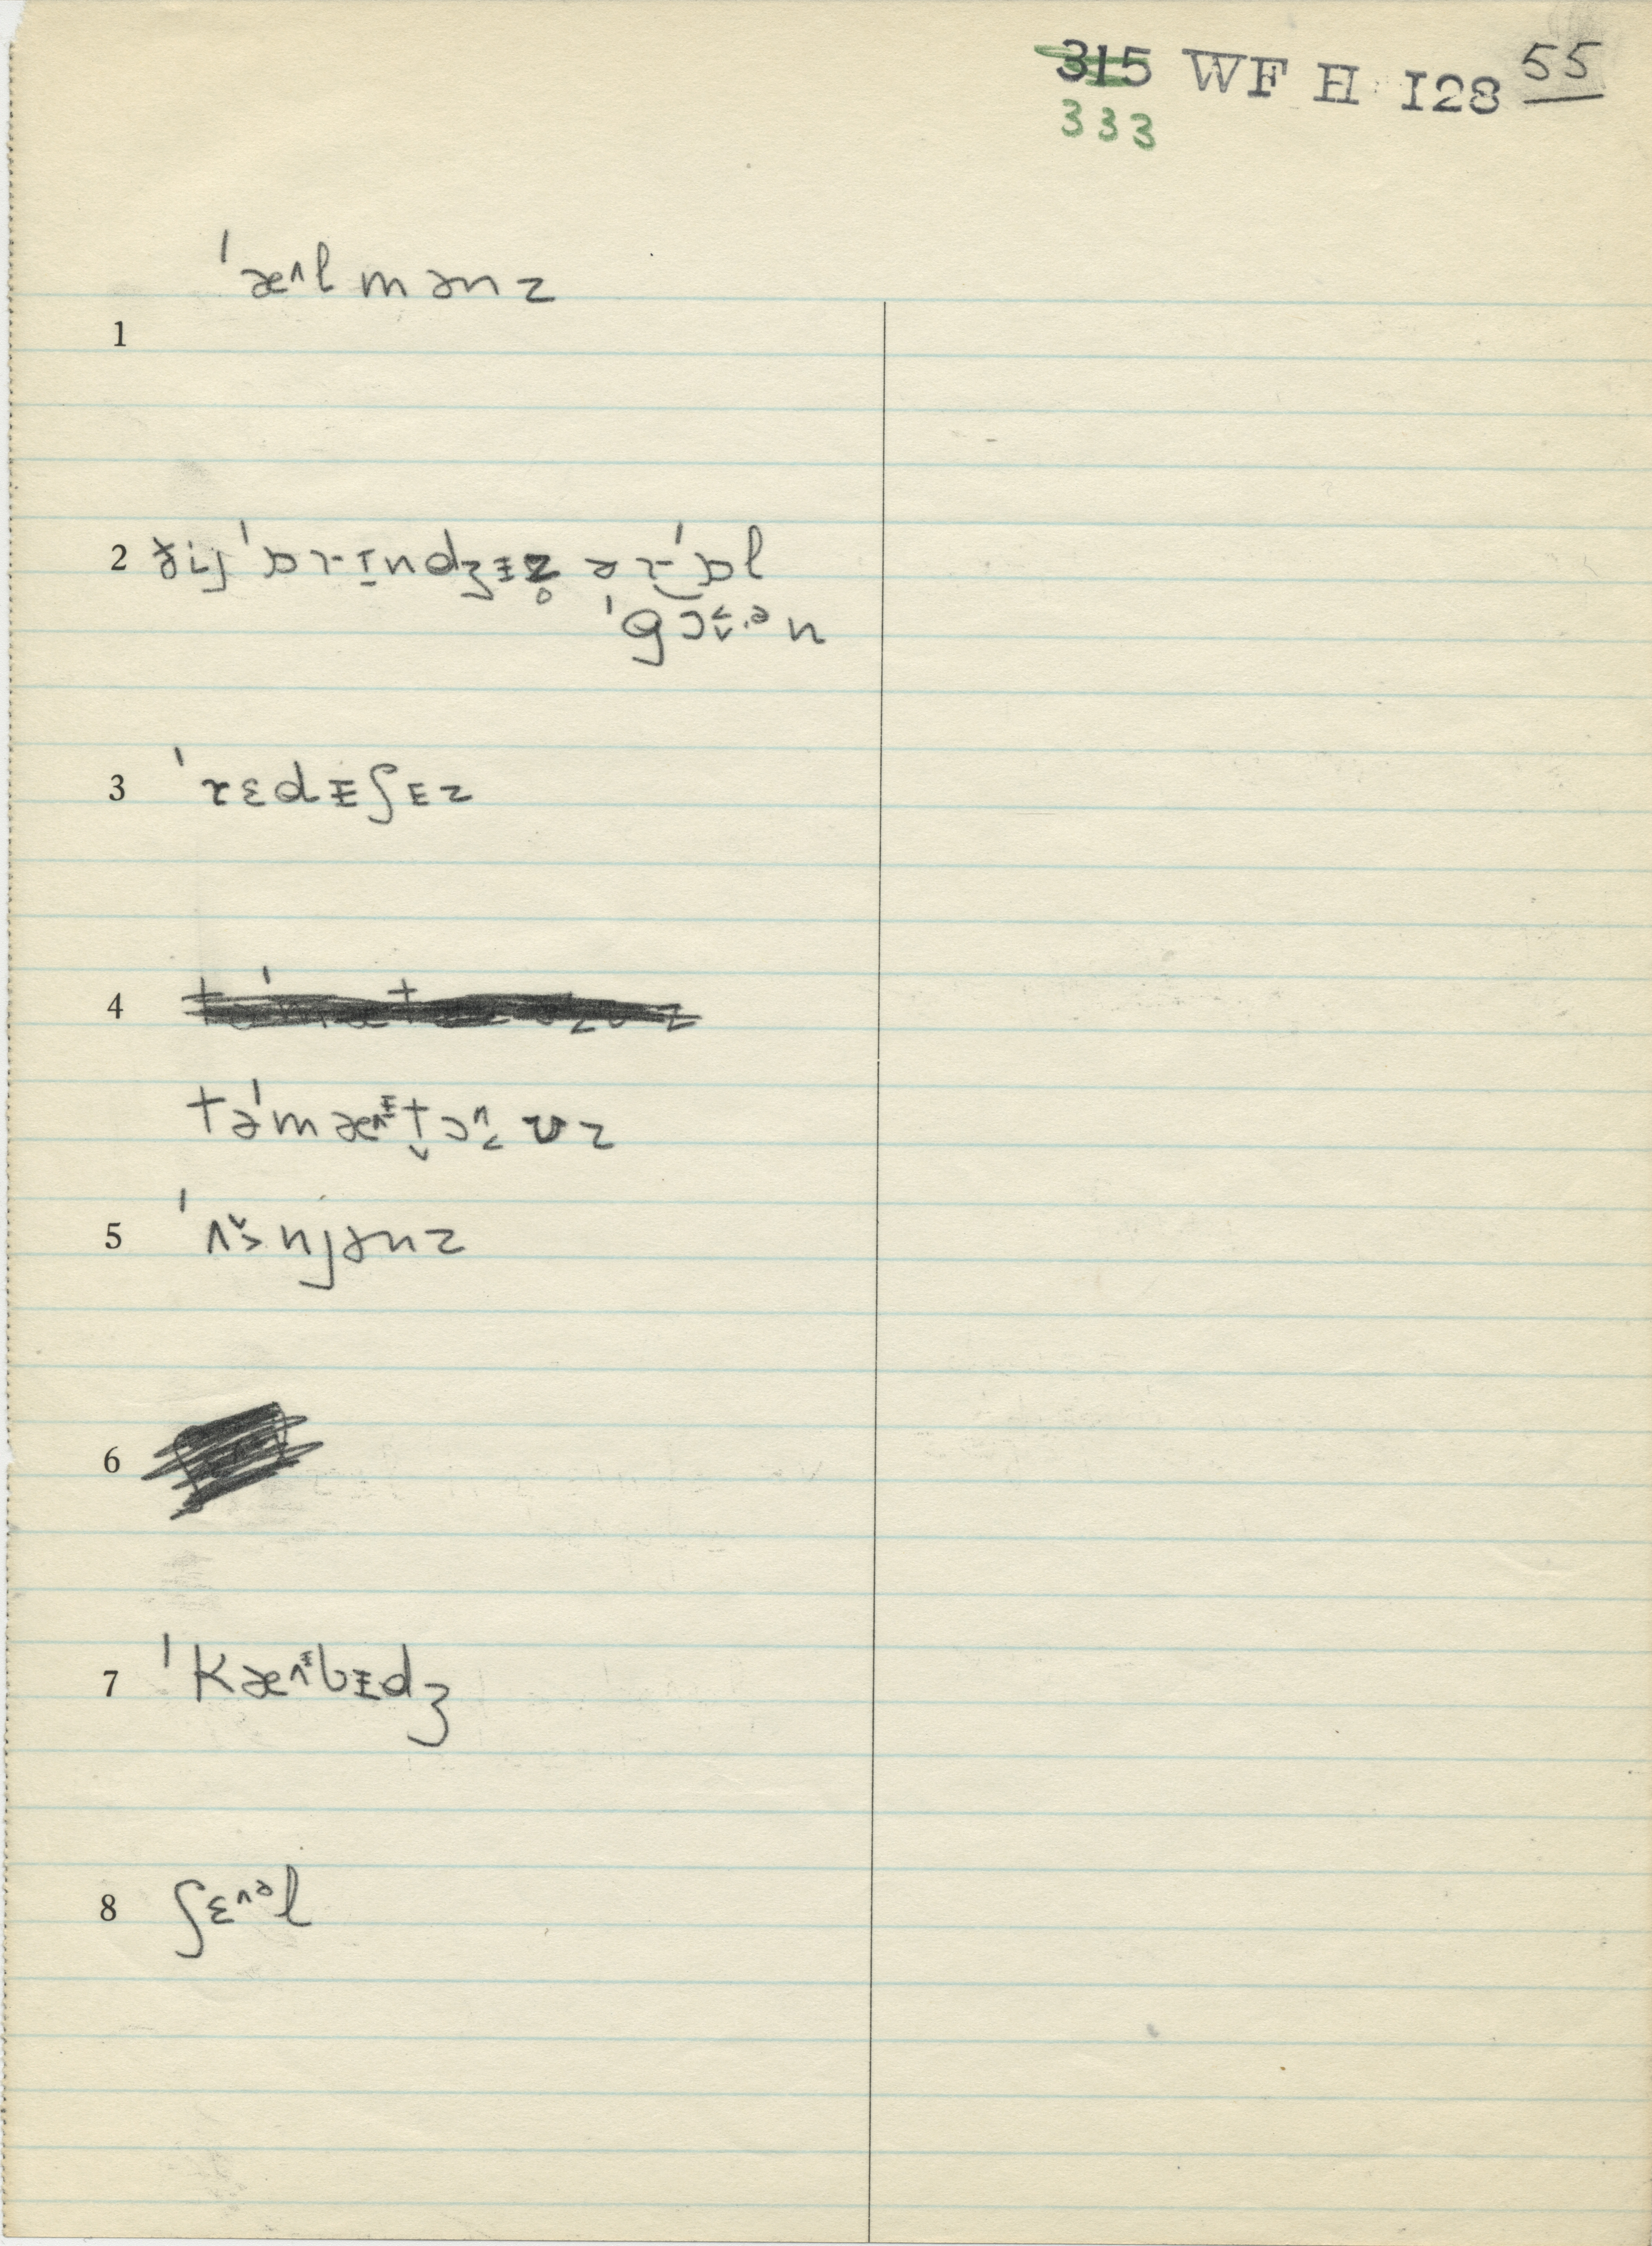 315 WF H I28 55
333
ˈæ^lmənz
1
2 ði̵j ˈɒrɪ̠ndʒɪ̵z̥ ər ˈɒl
ˈgɔ˂˅.ən
3 ˈrɛdɪ̵ʃɪ̵z
4
təˈmæ^ɪ̵t̬ɔ^˂ʊz
5 ˈʌ˅˃njənz
6
7 ˈKæ^ɪ̵bɪ̵dʒ
8 ʃɛ^əl